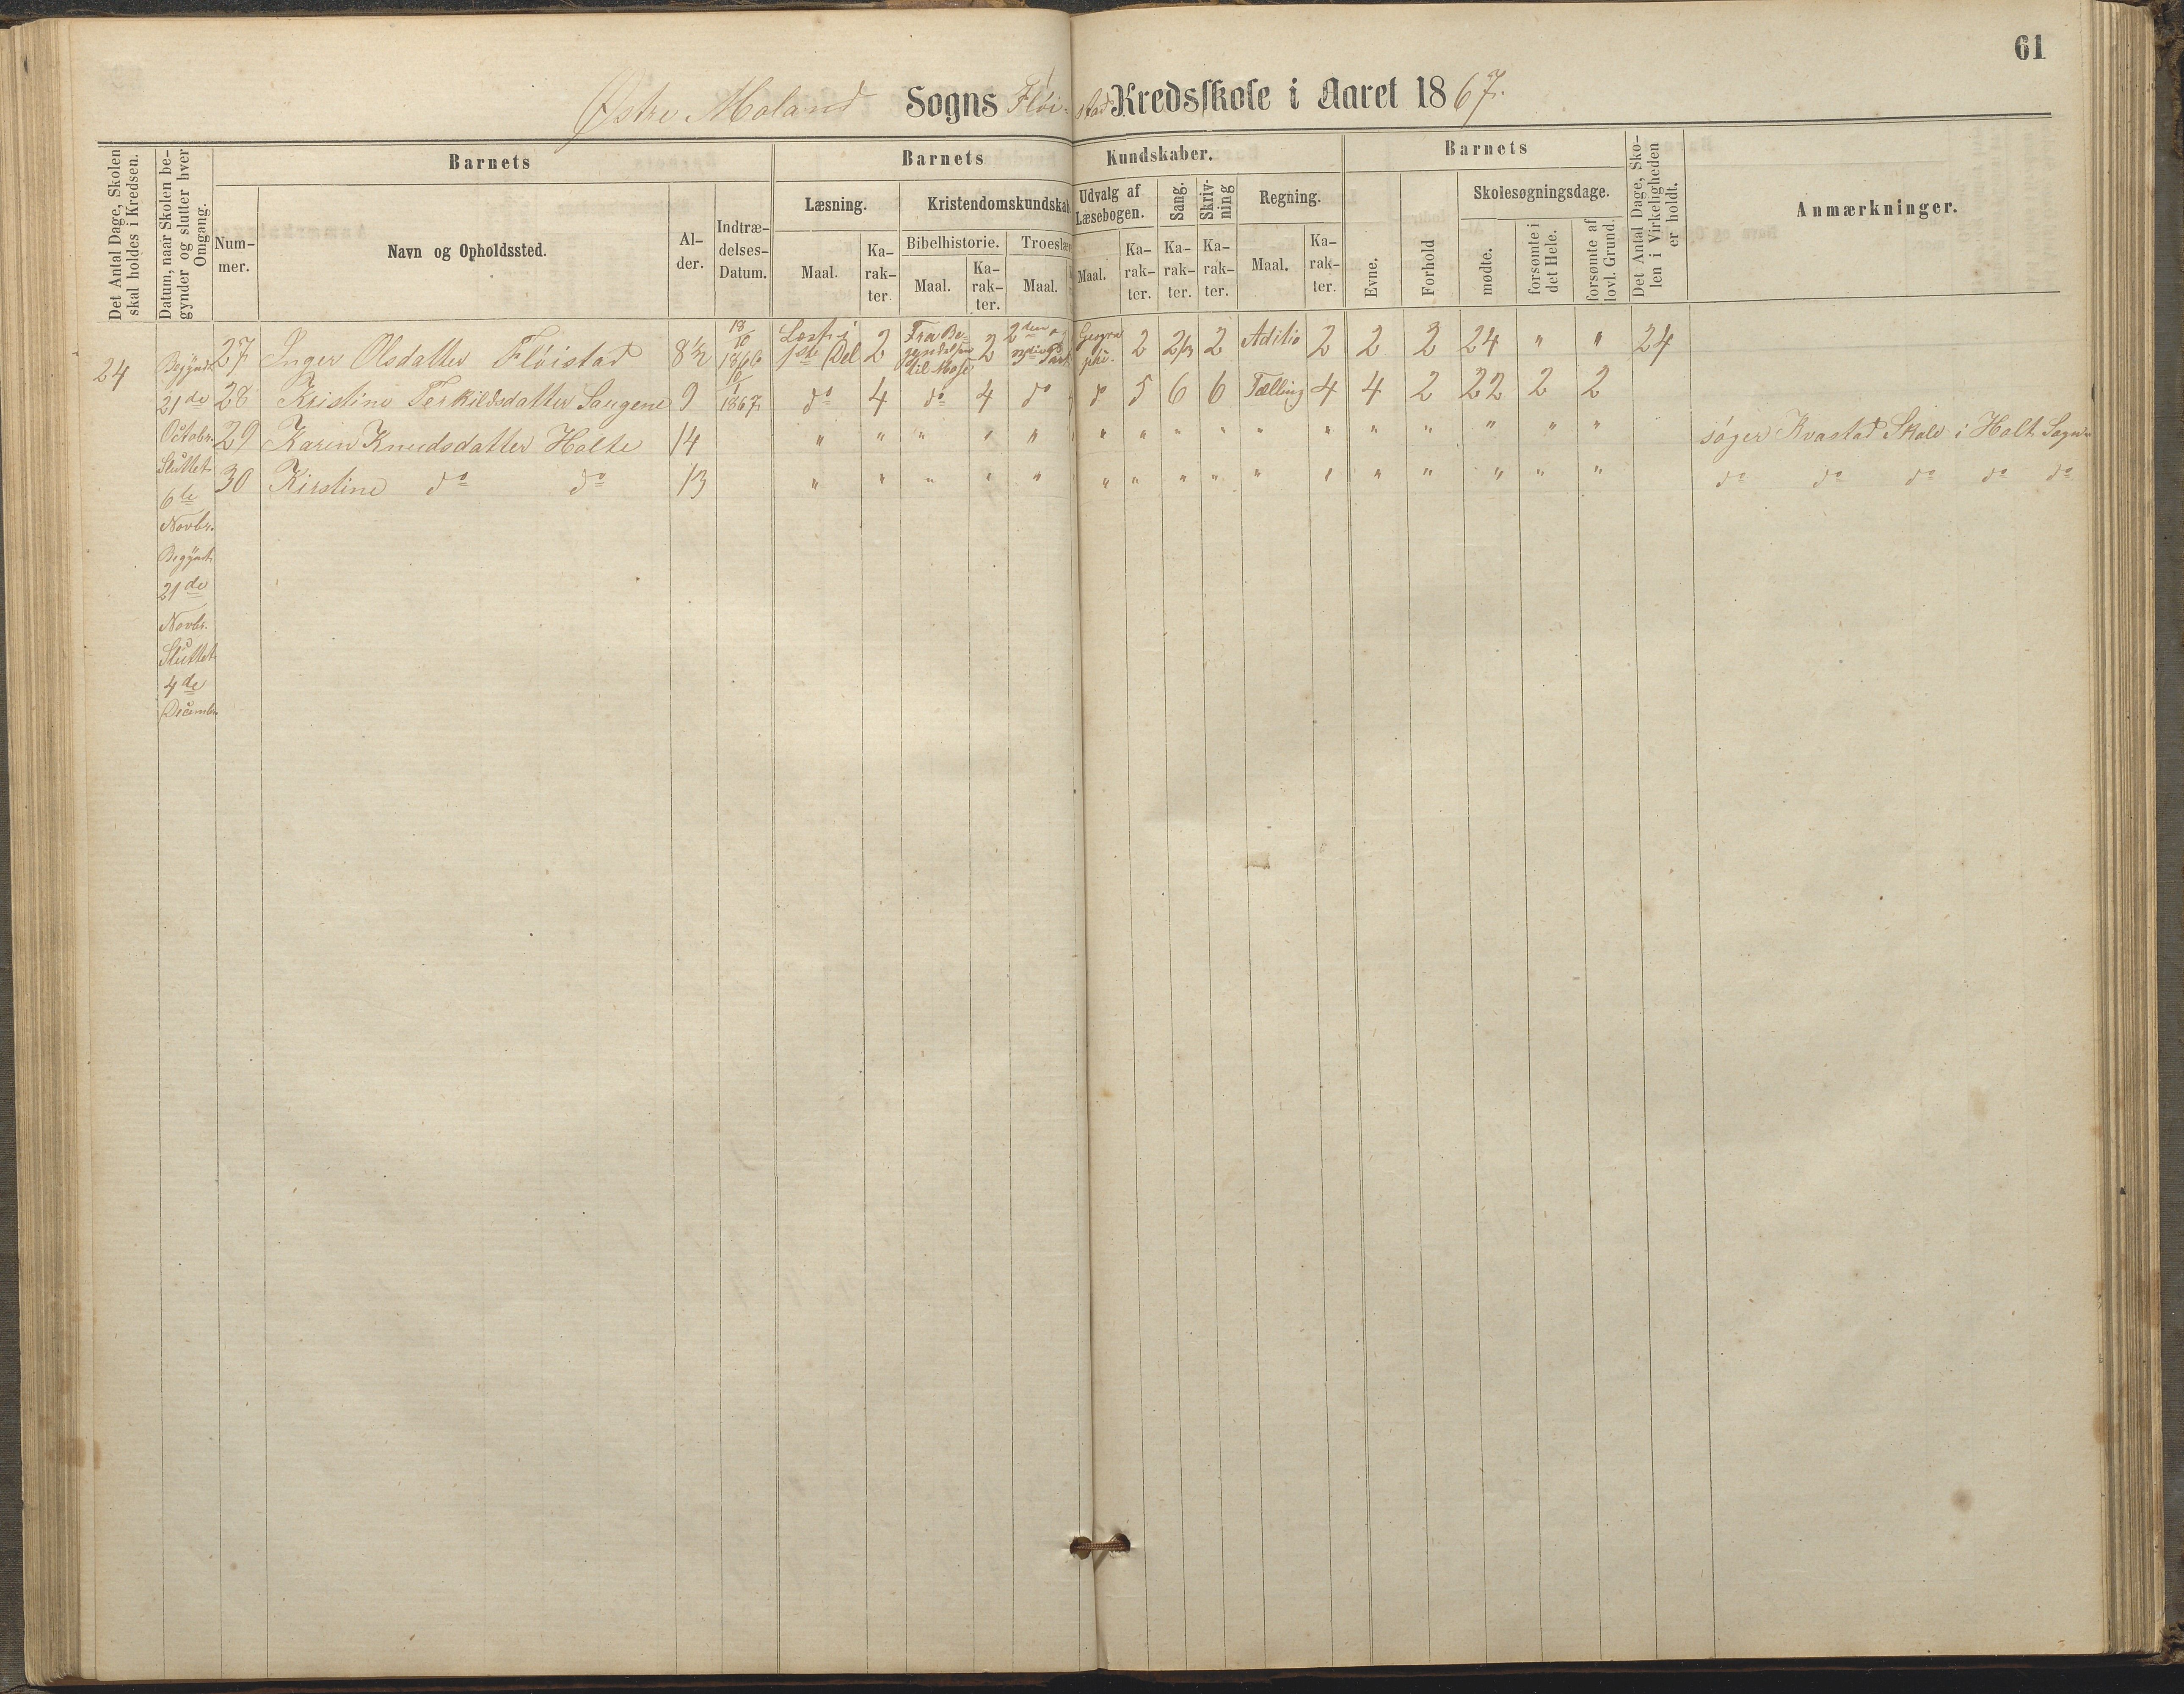 61
Østre Moland Sogns Flöistad Kredsskole i Aaret 1867.
Det Antal Dage, Skolen skal holdes i Kredsen.
Datum, naar Skolen begynder og slutter hver Omgang.
Barnets
Nummer.
Navn og Opholdssted.
Alder.
Indtrædelses-Datum.
Barnets Kundskaber.
Læsning.
Maal.
Karakter.
Kristendomskundskab
Bibelhistorie.
Maal.
Karakter.
Troeslær
Maal.
Udvalg af Læsebogen.
Maal.
Karakter.
Sang.
Karakter.
Skrivning
Karakter.
Regning.
Maal.
Karakter.
Barnets
Evne.
Forhold
Skolesøgningsdage.
mødte.
forsømte i det Hele.
forsømte af lovl. Grund.
Det Antal Dage, Skolen i Virkeligheden er holdt.
Anmærkninger.
24
Begyndt
21de
Octobr.
Sluttet
6te
Novbr.
Begyndt
21de
Novbr.
Sluttet
4de
Decembr.
27 Inger Olsdatter Flöistad 8½ 18/10 1866 Læst i 1ste Del 2 Fra Begyndelsen til Mose 2 2den og 3die Part Geographi. 2 2/3 2 Aditio 2 2 2 24 " " 24
28 Kristine Terkildsdatter Saugene 9 1867 do 4 do 4 do do 5 6 6 Tælling 4 4 2 22 2 2
29 Karen Knudsdatter Holte 14 " " " " " " " " " " " " " " " " " søger Kvastad Skole i Holt Sogn
30 Kirstine do do 13 " " " " " " " " " " " " " " " " do do do do do